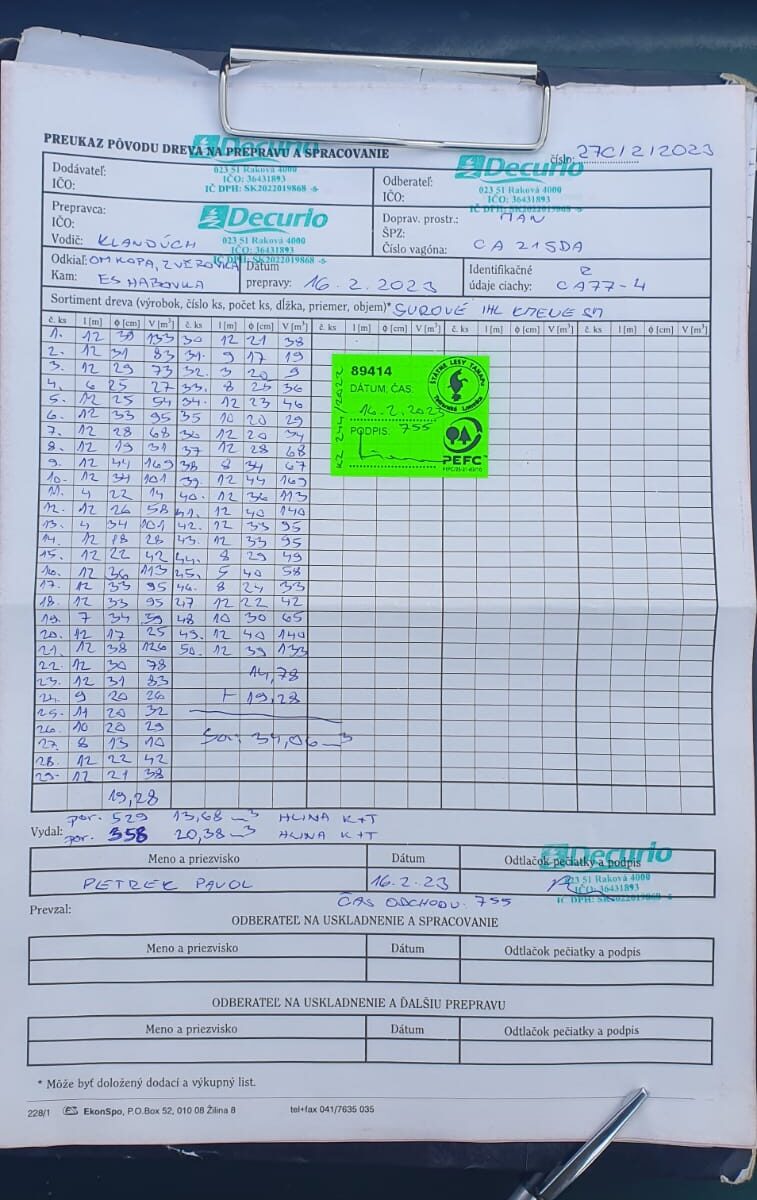 PREUKAZ PÔVODU DREVA NA PREPRAVU A SPRACOVANIE
číslo: 27C/2/2023
Decurio
023 51 Raková 4000
IČO: 36431893
IČ DPH: SK2022019868 -6-
Decurio
023 51 Raková 4000
IČO: 36431893
IČ DPH: SK2022019868 -6-
Dodávateľ:
IČO:
Odberateľ:
IČO:
Prepravca:
IČO:
Vodič: KLANDÚCH
Decurio
023 51 Raková 4000
IČO: 36431893
IČ DPH: SK2022019868 -6-
Doprav. prostr.: MAN
ŠPZ:
Číslo vagóna: CA 215DA
Odkiaľ: OM KOPA, ZVEROVKA
Kam: ES HABOVKA
Dátum
prepravy: 16.2.2023
Identifikačné
údaje ciachy: CA77-4
Sortiment dreva (výrobok, číslo ks, počet ks, dĺžka, priemer, objem)* SUROVÉ IHL KMENE SM
č. ks l [m] ϕ [cm] V [m³] č. ks l [m] ϕ [cm] V [m³] č. ks l [m] ϕ [cm] V [m³] č. ks l [m] ϕ [cm] V [m³] č. ks l [m] ϕ [cm] V [m³]
1. 12 39 133 30 12 21 38
2. 12 31 83 31. 9 17 19
3. 12 29 73 32. 3 20 9
4. 6 25 27 33. 8 25 36
5. 12 25 54 34. 12 23 46
6. 12 33 95 35 10 20 29
7. 12 28 68 36 12 20 34
8. 12 19 31 37 12 28 68
9. 12 44 169 38 8 34 67
10. 12 34 101 39. 12 44 169
11. 4 22 14 40. 12 36 113
12. 12 26 58 41. 12 40 140
13. 4 34 101 42. 12 33 95
14. 12 18 28 43. 12 33 95
15. 12 22 42 44. 8 29 49
16. 12 36 113 45. 5 40 58
17. 12 33 95 46. 8 24 33
18. 12 33 95 47 12 22 42
19. 7 34 59 48 10 30 65
20. 12 17 25 49. 12 40 140
21. 12 38 126 50. 12 39 133
22. 12 30 78
14,78
23. 12 31 83
24. 9 20 26
+ 19,28
25. 11 20 32
26. 10 20 29
27. 8 13 10
34,06 m3
28. 12 22 42
29. 12 21 38
19,28
89414
DÁTUM, ČAS:
16.2.2023
PODPIS: 755
ŠTÁTNE LESY TANAPu
Tatranská Lomnica
PEFC
por. 529 13,68 m3 HLINA K+T
Vydal: por. 358 20,38 m3 HLINA K+T
Meno a priezvisko Dátum Odtlačok pečiatky a podpis
Decurio
023 51 Raková 4000
IČO: 36431893
IČ DPH: SK2022019868 -6-
PETREK PAVOL 16.2.23
ČAS ODCHODU: 755
Prevzal:
ODBERATEĽ NA USKLADNENIE A SPRACOVANIE
Meno a priezvisko Dátum Odtlačok pečiatky a podpis
ODBERATEĽ NA USKLADNENIE A ĎALŠIU PREPRAVU
Meno a priezvisko Dátum Odtlačok pečiatky a podpis
* Môže byť doložený dodací a výkupný list.
228/1 EkonSpo, P.O.Box 52, 010 08 Žilina 8 tel+fax 041/7635 035